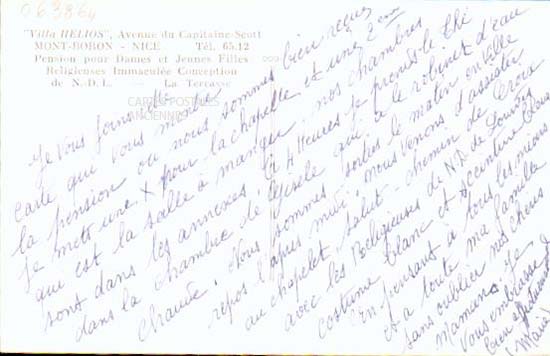 063864
"Villa HELIOS", Avenue du Capitaine-Scott
MONT-BORON - NICE Tél. 65.12
Pension pour Dames et Jeunes Filles
Religieuses Immaculée Conception
de N.D.L. — La Terrasse
CARTES POSTALES
ANCIENNES
Je vous joins une
carte qui vous montre
la pension où nous sommes bien
Je mets une X pour la chapelle et une 2ème
que est la salle à manger. nos chambres
sont dans les annexes. à 4 heures je prends le thé
dans la chambre de Gisèle qui a le robinet d'eau
chaude. Nous sommes sorties le matin en ville
repos l'après midi. nous venons d'assister
au chapelet, salut - chemin de Croix
avec les Religieuses de N.D. de Lourdes
costume blanc et ceinture bleue
En pensant à tous les miens
et à toute ma famille
sans oublier nos chères
Mamans. je
vous embrasse
bien
Marie